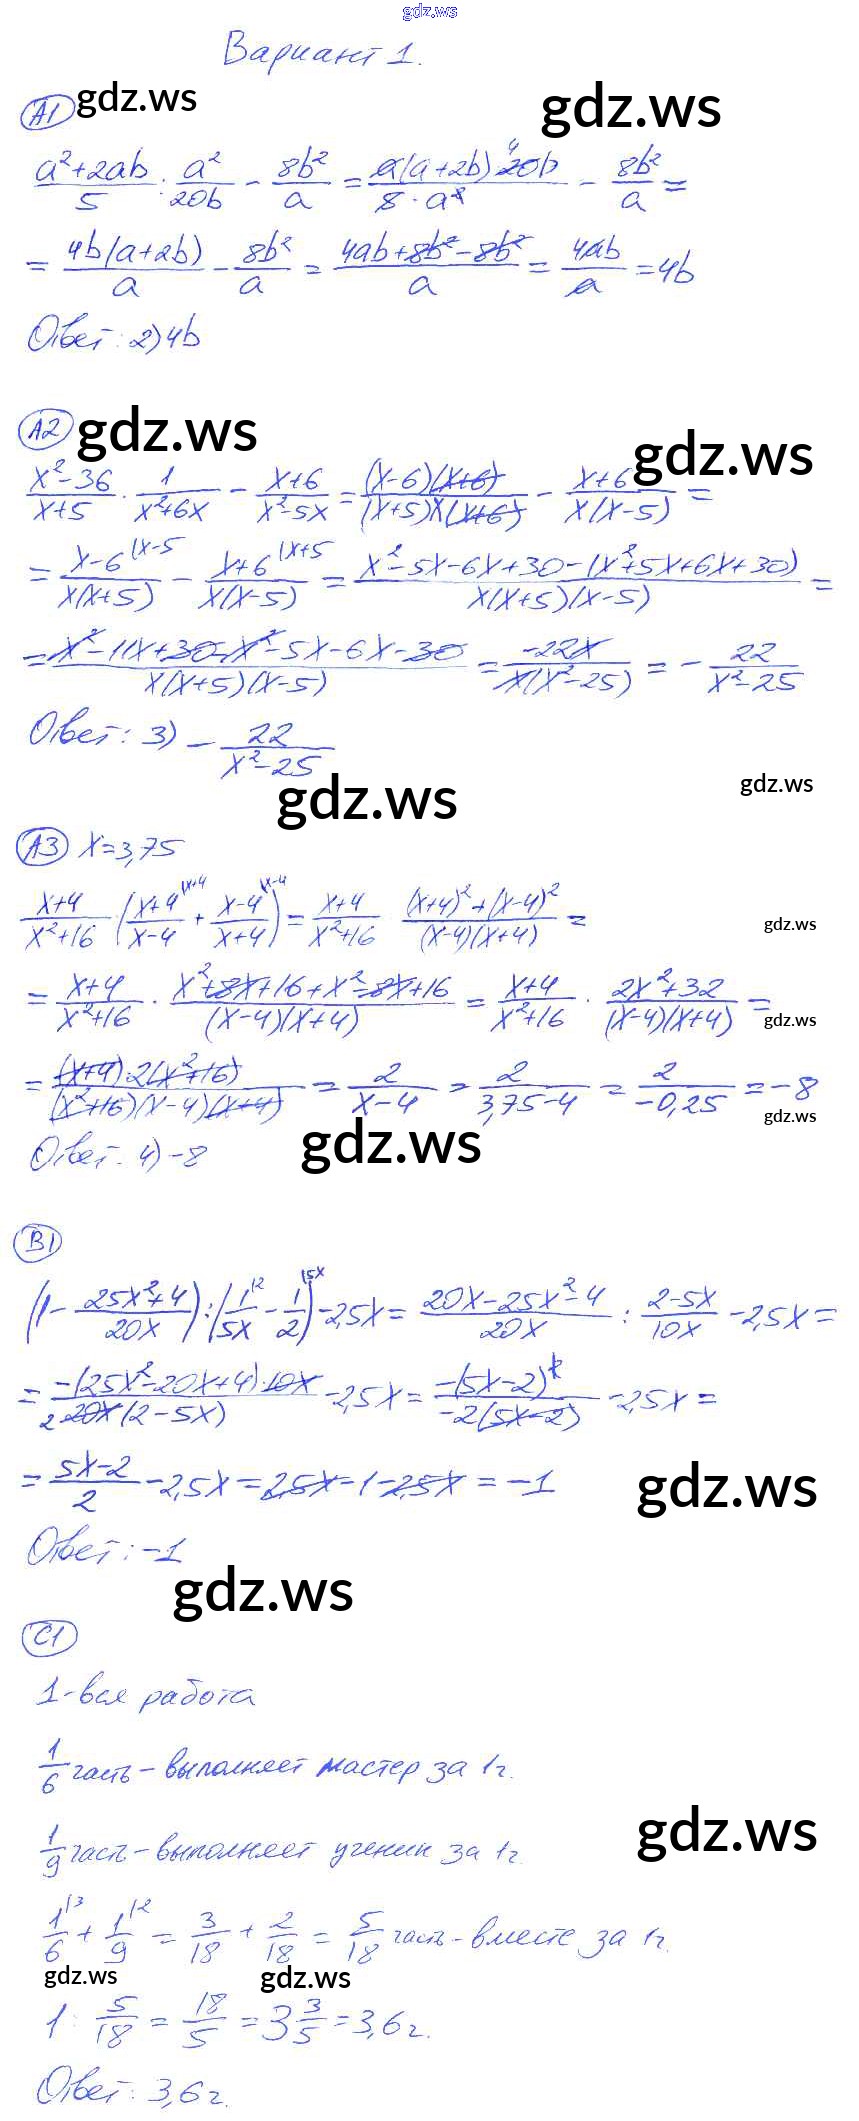 gdz.ws
Вариант 1.
А1 gdz.ws gdz.ws
(a²+2ab)/5 : a²/20b − 8b²/a = a(a+2b) 20b 4/(5 · a²) − 8b²/a =
= 4b(a+2b)/a − 8b²/a = (4ab+8b²−8b²)/a = 4ab/a = 4b
Ответ: 2) 4b
А2 gdz.ws gdz.ws
(x²−36)/(x+5) · 1/(x²+6x) − (x+6)/(x²−5x) = (x−6)(x+6)/((x+5)x(x+6)) − (x+6)/(x(x−5)) =
= (x−6)/(x(x+5)) (x−5 − (x+6)/(x(x−5)) (x+5 = (x²−5x−6x+30−(x²+5x+6x+30))/(x(x+5)(x−5)) =
= (x²−11x+30−x²−5x−6x−30)/(x(x+5)(x−5)) = −22x/(x(x²−25)) = − 22/(x²−25)
Ответ: 3) − 22/(x²−25)
gdz.ws gdz.ws
А3 x=3,75
(x+4)/(x²+16) · ((x+4)/(x−4) (x+4 + (x−4)/(x+4) (x−4) = (x+4)/(x²+16) ((x+4)²+(x−4)²)/((x−4)(x+4)) = gdz.ws
= (x+4)/(x²+16) · (x²+8x+16+x²−8x+16)/((x−4)(x+4)) = (x+4)/(x²+16) · (2x²+32)/((x−4)(x+4)) = gdz.ws
= (x+4)·2(x²+16)/((x²+16)(x−4)(x+4)) = 2/(x−4) = 2/(3,75−4) = 2/(−0,25) = −8 gdz.ws
Ответ. 4) −8 gdz.ws
В1
(1 − (25x²+4)/20x) : (1/5x (2 − 1/2 (5x) − 2,5x = (20x−25x²−4)/20x : (2−5x)/10x − 2,5x =
= −(25x²−20x+4)·10x/(2 20x(2−5x)) − 2,5x = −(5x−2)²/(−2(5x−2)) − 2,5x =
= (5x−2)/2 − 2,5x = 2,5x−1−2,5x = −1 gdz.ws
Ответ: −1
gdz.ws
С1
1-вся работа
1/6 часть – выполняет мастер за 1ч.
1/9 часть – выполняет ученик за 1ч. gdz.ws
1/6 (3 + 1/9 (2 = 3/18 + 2/18 = 5/18 часть – вместе за 1ч.
gdz.ws gdz.ws
1 : 5/18 = 18/5 = 3 3/5 = 3,6ч.
Ответ: 3,6ч.